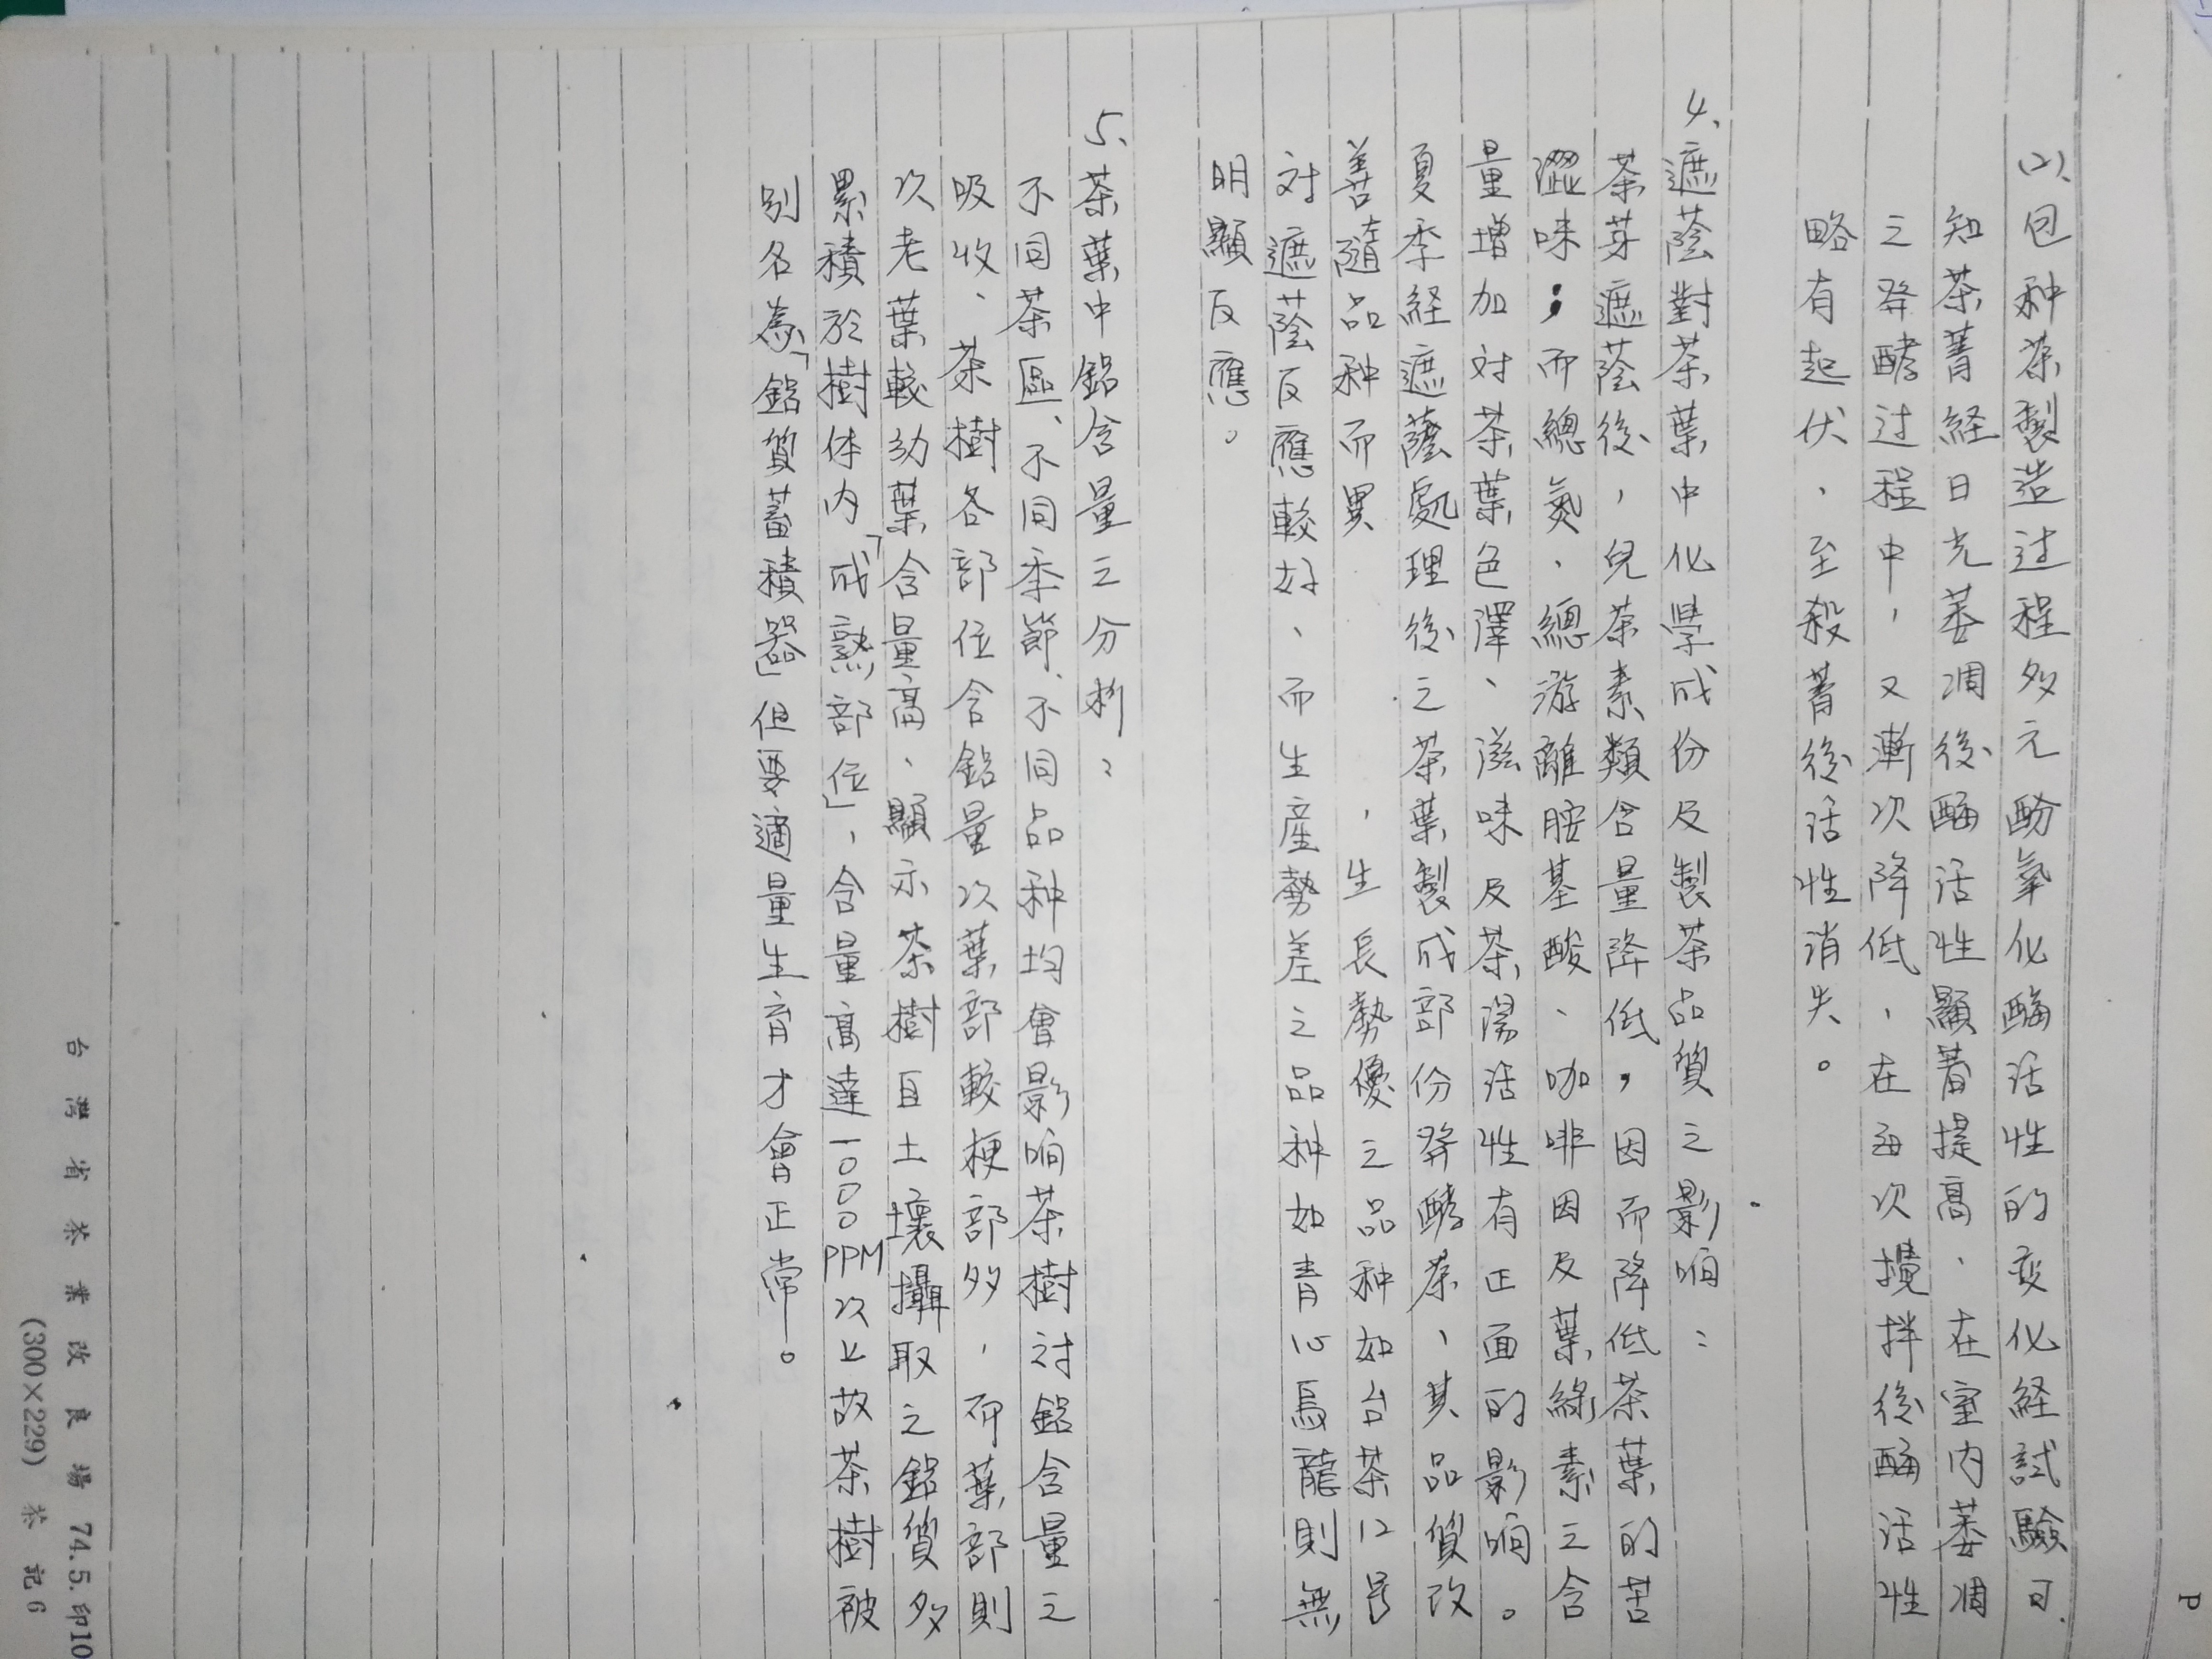 (2)、包种茶製造过程多元酚氧化酶活性的变化経試驗可
知茶菁経日光萎凋後酶活性顯著提高、在室内萎凋
之発酵过程中，又漸次降低、在每次攪拌後酶活性
略有起伏、至殺菁後活性消失。
4、遮蔭對茶葉中化學成份及製茶品質之影响：
茶芽遮蔭後，兒茶素類含量降低，因而降低茶葉的苦
澀味；而總氮、總游離胺基酸、咖啡因及葉綠素之含
量增加对茶葉色澤、滋味及茶湯活性有正面的影响。
夏季経遮蔭處理後之茶葉製成部份発酵茶、其品質改
善隨品种而異，生長勢優之品种如台茶12号
对遮蔭反應較好、而生產勢差之品种如青心烏龍則無
明顯反應。
5、茶葉中鋁含量之分析：
不同茶區、不同季節、不同品种均會影响茶樹討鋁含量之
吸收、茶樹各部位含鋁量次葉部較梗部多，而葉部則
次老葉較幼葉含量高、顯示茶樹自土壤攝取之鋁質多
累積於樹体内「成熟部位」，含量高達一000PPM以上故茶樹被
别名為「鋁質蓄積器」但要適量生育才會正常。
台灣省茶業改良場 74.5.印10
(300×229) 茶記6
P